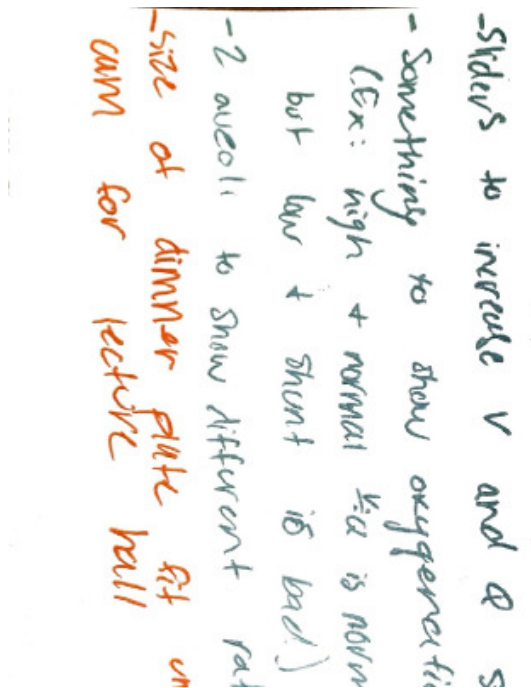 -Sliders to increase V and Q s
-Something to show oxygenati
(Ex: high + normal V:Q is norm
but low + shunt is bad)
-2 aveoli to show different rat
-Size of dinner plate fit un
cam for lecture hall